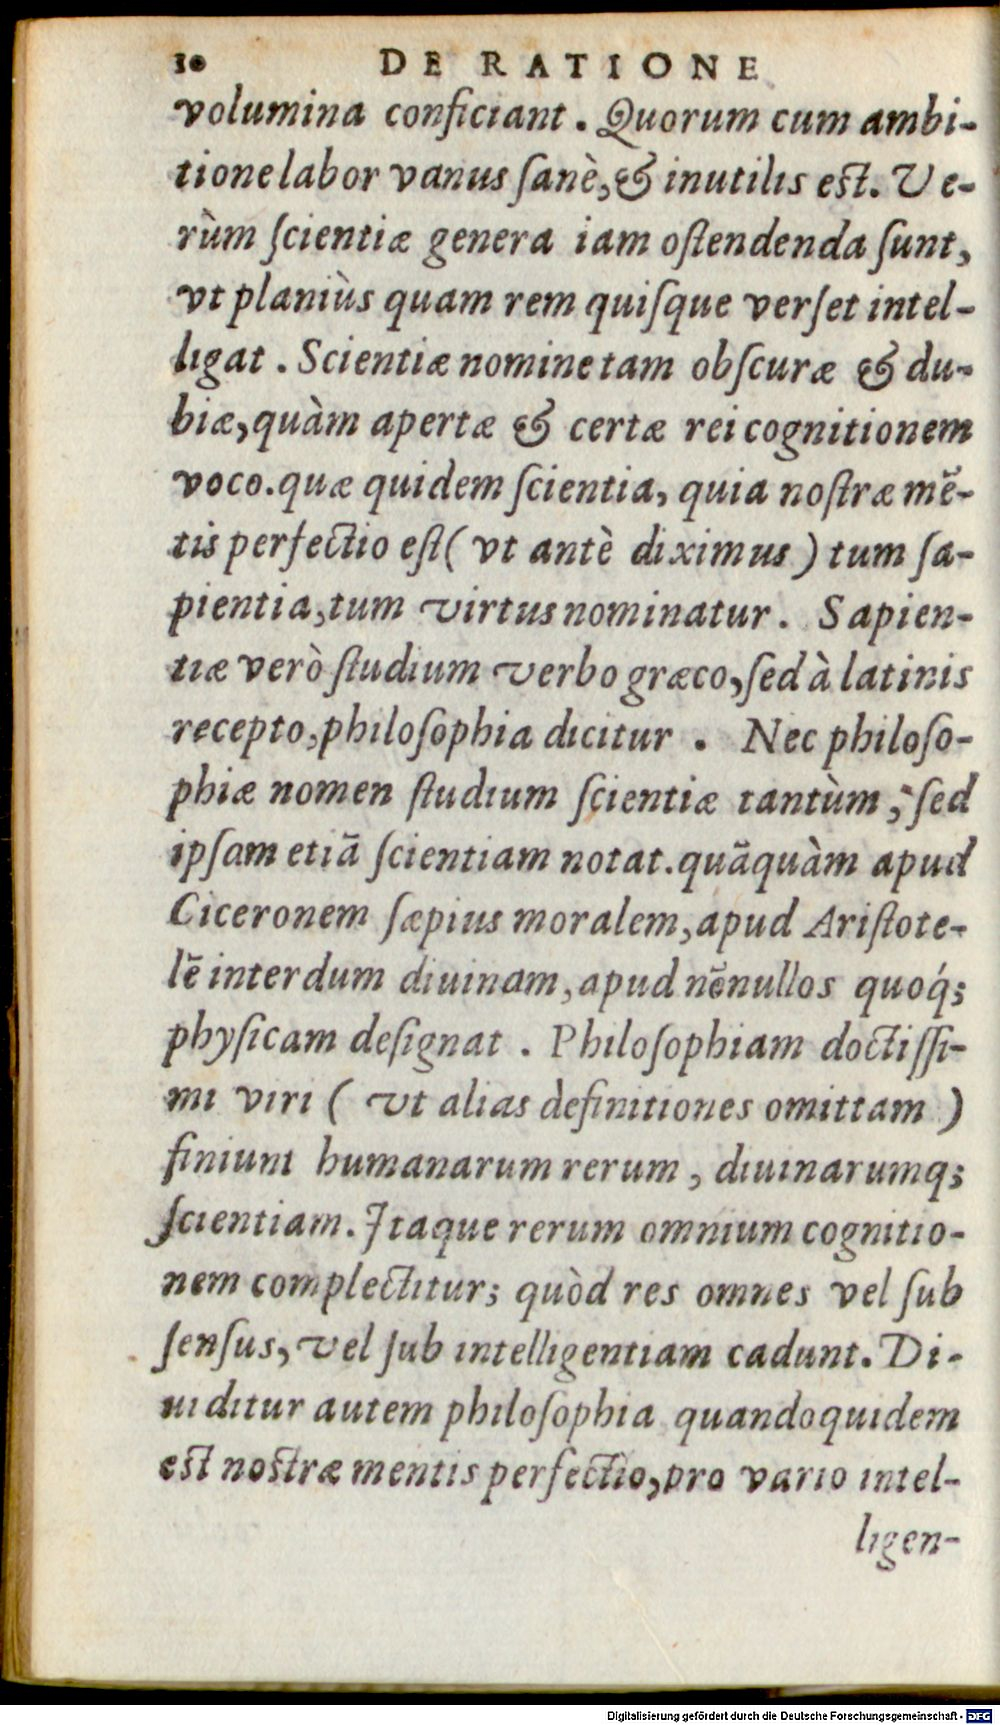 10 DE RATIONE
volumina conficiant. Quorum cum ambi-
tione labor vanus sanè, & inutilis est. Ve-
rùm scientiæ genera iam ostendenda sunt,
vt planiùs quam rem quisque verset intel-
ligat. Scientiæ nomine tam obscuræ & du-
biæ, quàm apertæ & certæ rei cognitionem
voco. quæ quidem scientia, quia nostræ mẽ-
tis perfectio est (vt antè diximus) tum sa-
pientia, tum virtus nominatur. Sapien-
tiæ verò studium verbo græco, sed à latinis
recepto, philosophia dicitur. Nec philoso-
phiæ nomen studium scientiæ tantùm, sed
ipsam etiã scientiam notat. quãquàm apud
Ciceronem sæpius moralem, apud Aristote-
lẽ interdum diuinam, apud nõnullos quoq́;
physicam designat. Philosophiam doctissi-
mi viri (vt alias definitiones omittam)
finiunt humanarum rerum, diuinarumq;
scientiam. Itaque rerum omnium cognitio-
nem complectitur; quòd res omnes vel sub
sensus, vel sub intelligentiam cadunt. Di-
uiditur autem philosophia quandoquidem
est nostræ mentis perfectio, pro vario intel-
ligen-
Digitalisierung gefördert durch die Deutsche Forschungsgemeinschaft - DFG